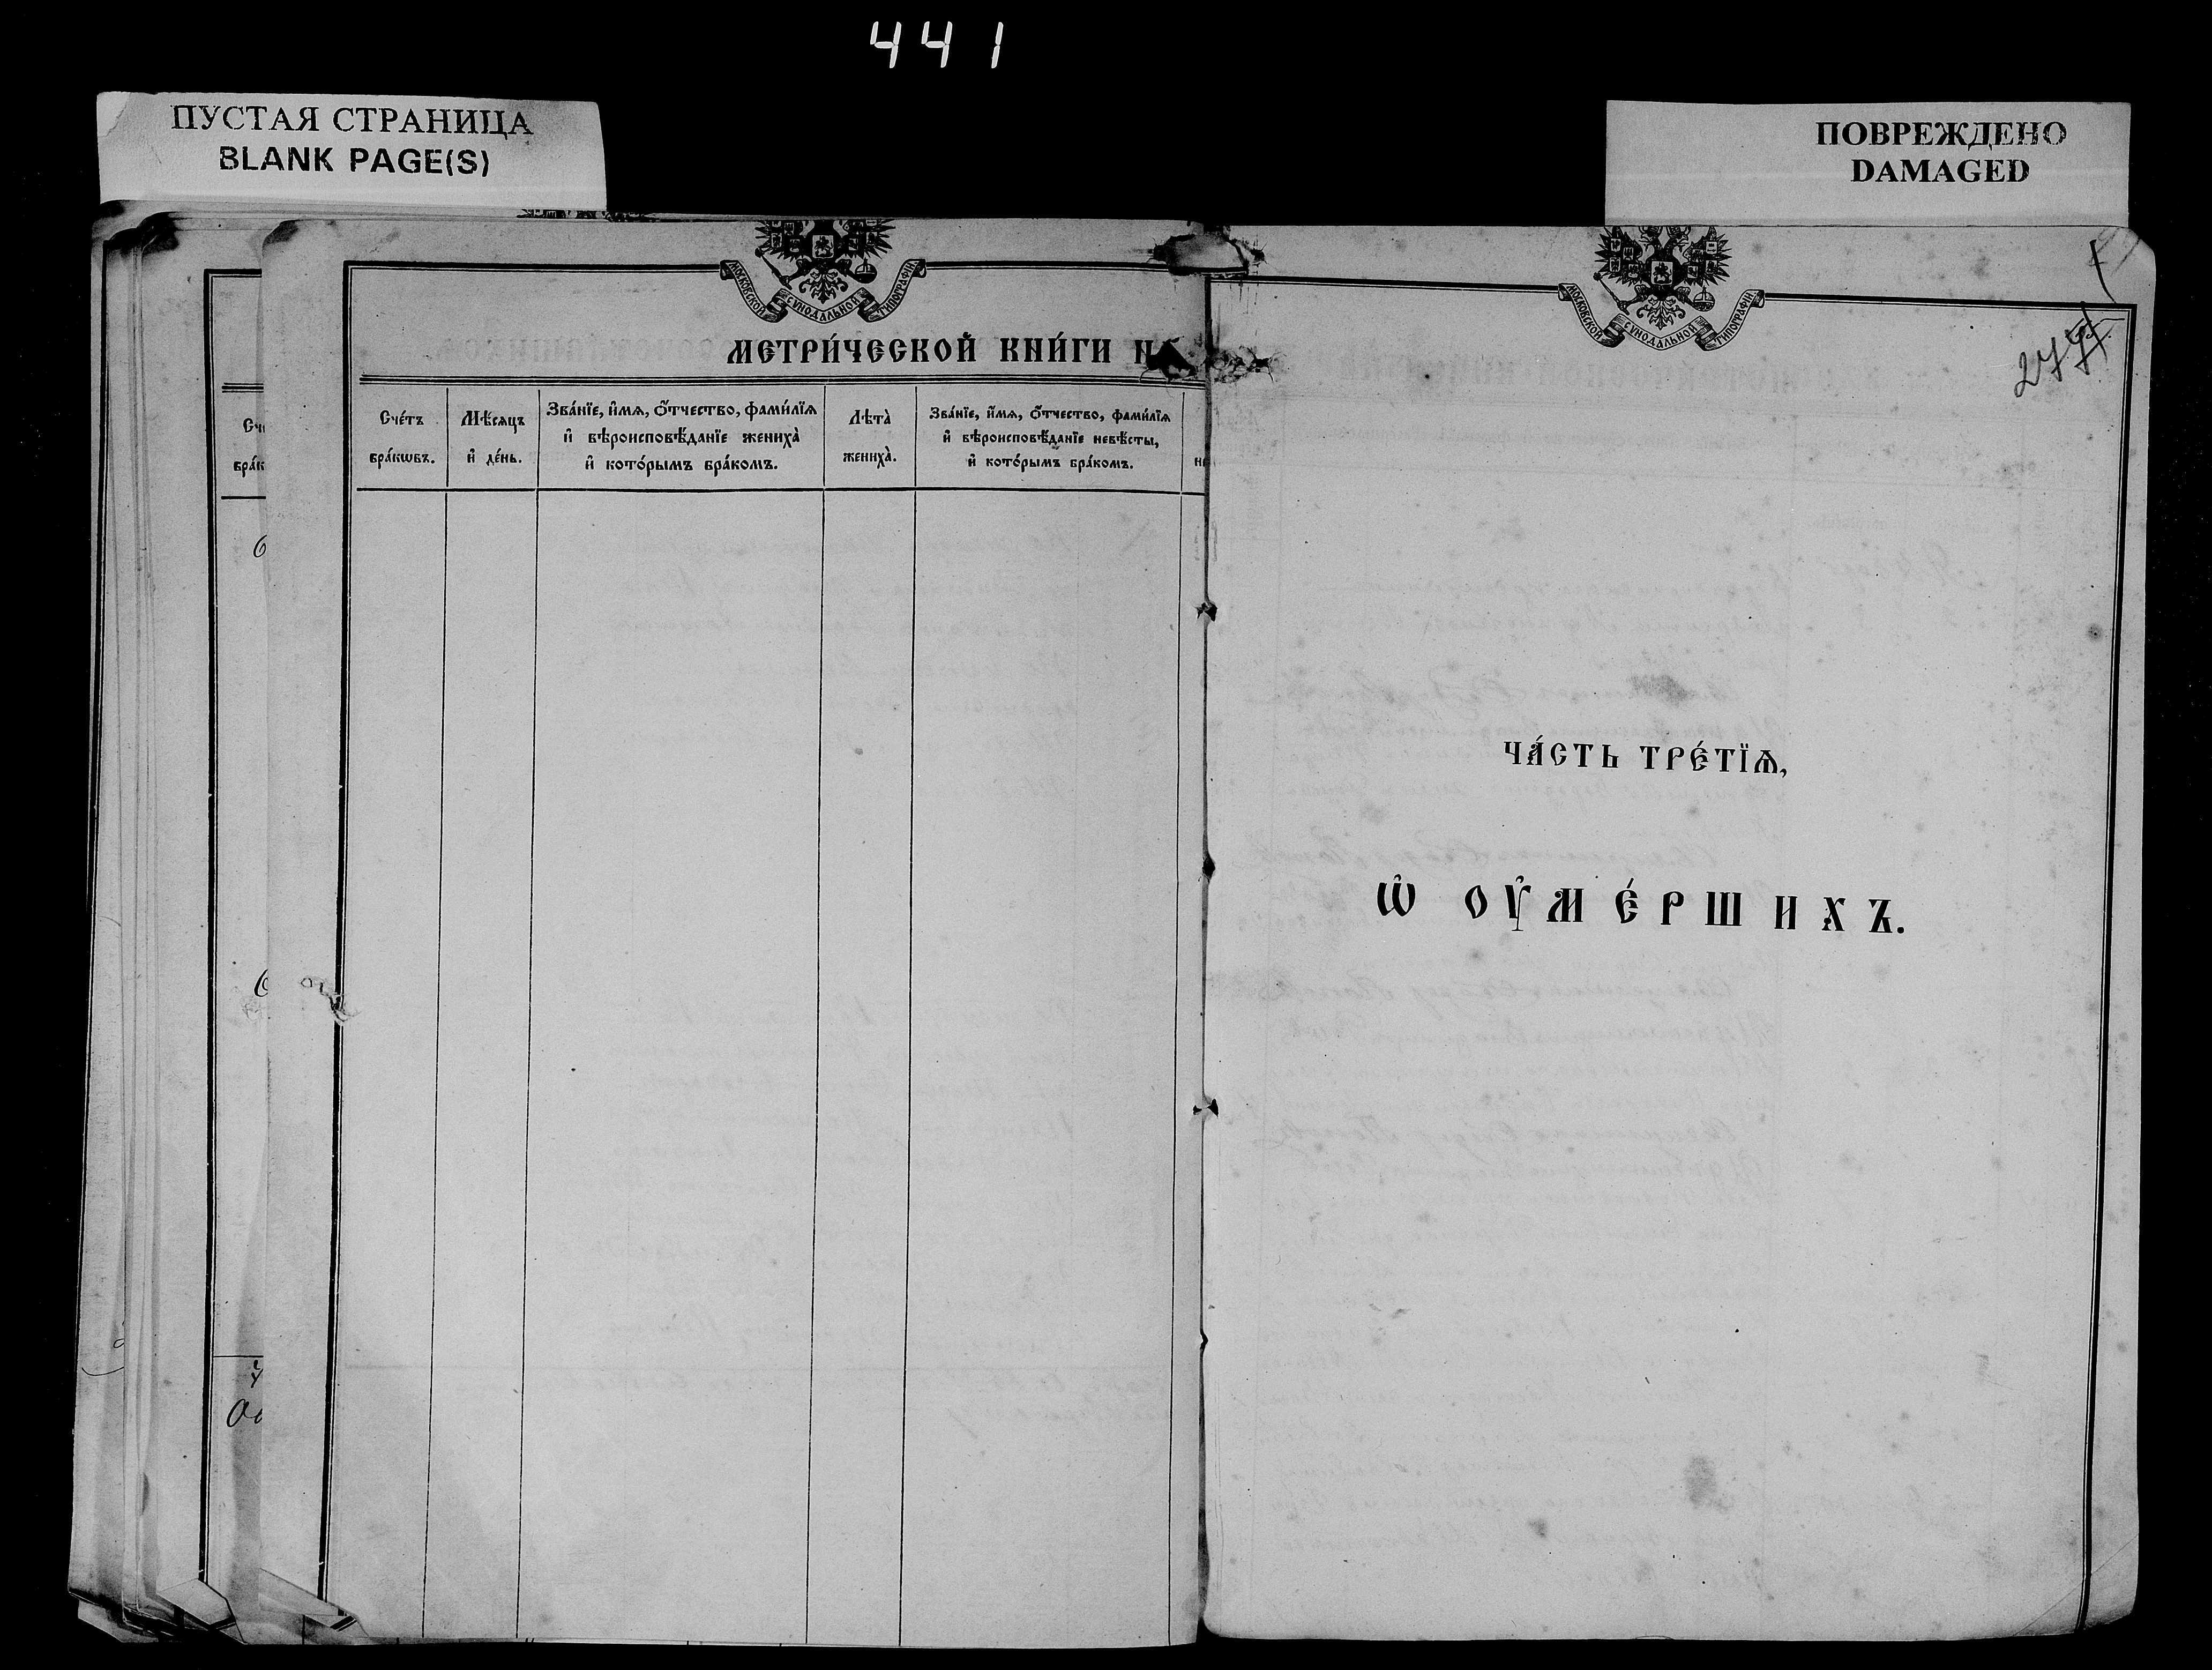 441
ПУСТАЯ СТРАНИЦА
BLANK PAGE(S)
ПОВРЕЖДЕНО
DAMAGED
МОСКОВСКОЙ СѴНОДАЛЬНОЙ ТИПОГРАФІИ.
МЕТРИ́ЧЕСКОЙ КНИ́ГИ Н
Сче́тъ бра́кѡвъ.
Мѣ́сѧцъ и҆ де́нь.
Зва́нїе, и҆́мѧ, ѻ҆́тчество, фами́лїѧ
и҆ вѣроисповѣ́данїе жениха̀
и҆ кото́рымъ бра́комъ.
Лѣта̀ жениха̀.
Зва́нїе, и҆́мѧ, ѻ҆́тчество, фами́лїѧ
и҆ вѣроисповѣ́данїе невѣ́сты,
и҆ кото́рымъ бра́комъ.
МОСКОВСКОЙ СѴНОДАЛЬНОЙ ТИПОГРАФІИ.
ЧА́СТЬ ТРЕ́ТЇѦ,
Ѡ҆ ОУ҆МЕ́РШИХЪ.